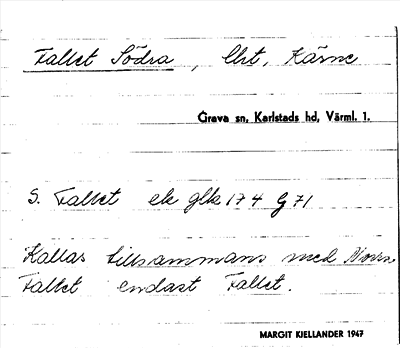 Fallet Södra, Lht, Kärne
Grava sn, Karlstads hd, Värml. 1.
S. Fallet ek glk 174 G 71
Kallas tillsammans med Norra
Fallet endast Fallet.
MARGIT KJELLANDER 1947